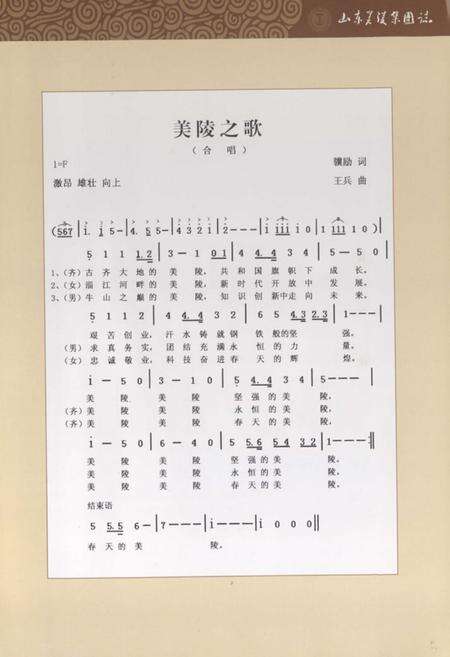 山东美陵集团志
美陵之歌
（合 唱）
1=F 骥励 词
激昂 雄壮 向上 王兵 曲
5 1 1 1 2 | 3 — 1 0 1 | 4 4. 4 3 4 | 5 — 5 0 |
1、(齐) 古 齐 大 地 的 美 陵， 共 和 国 旗 帜 下 成 长。
2、(女) 淄 江 河 畔 的 美 陵， 新 时 代 开 放 中 发 展。
3、(男) 牛 山 之 巅 的 美 陵， 知 识 创 新 中 走 向 未 来。
艰 苦 创 业， 汗 水 铸 就 钢 铁 般 的 坚 强。
(男) 求 真 务 实， 团 结 充 满 永 恒 的 力 量，
(女) 忠 诚 敬 业， 科 技 奋 进 春 天 的 辉 煌。
i — 5 0 | 3 — 1 0 | 5 4. 4 3 4 | 5 — — — |
美 陵 美 陵 坚 强 的 美 陵，
(齐) 美 陵 美 陵 永 恒 的 美 陵，
(齐) 美 陵 美 陵 春 天 的 美 陵，
i — 5 0 | 6 — 4 0 | 5 5. 6 5 4 3 2 | 1 — — — ‖
美 陵 美 陵 坚 强 的 美 陵。
美 陵 美 陵 永 恒 的 美 陵。
美 陵 美 陵 春 天 的 美 陵。
结束语
5 5. 5 6 — | 7 — — — | i — — — | i 0 0 0 ‖
春 天 的 美 陵。